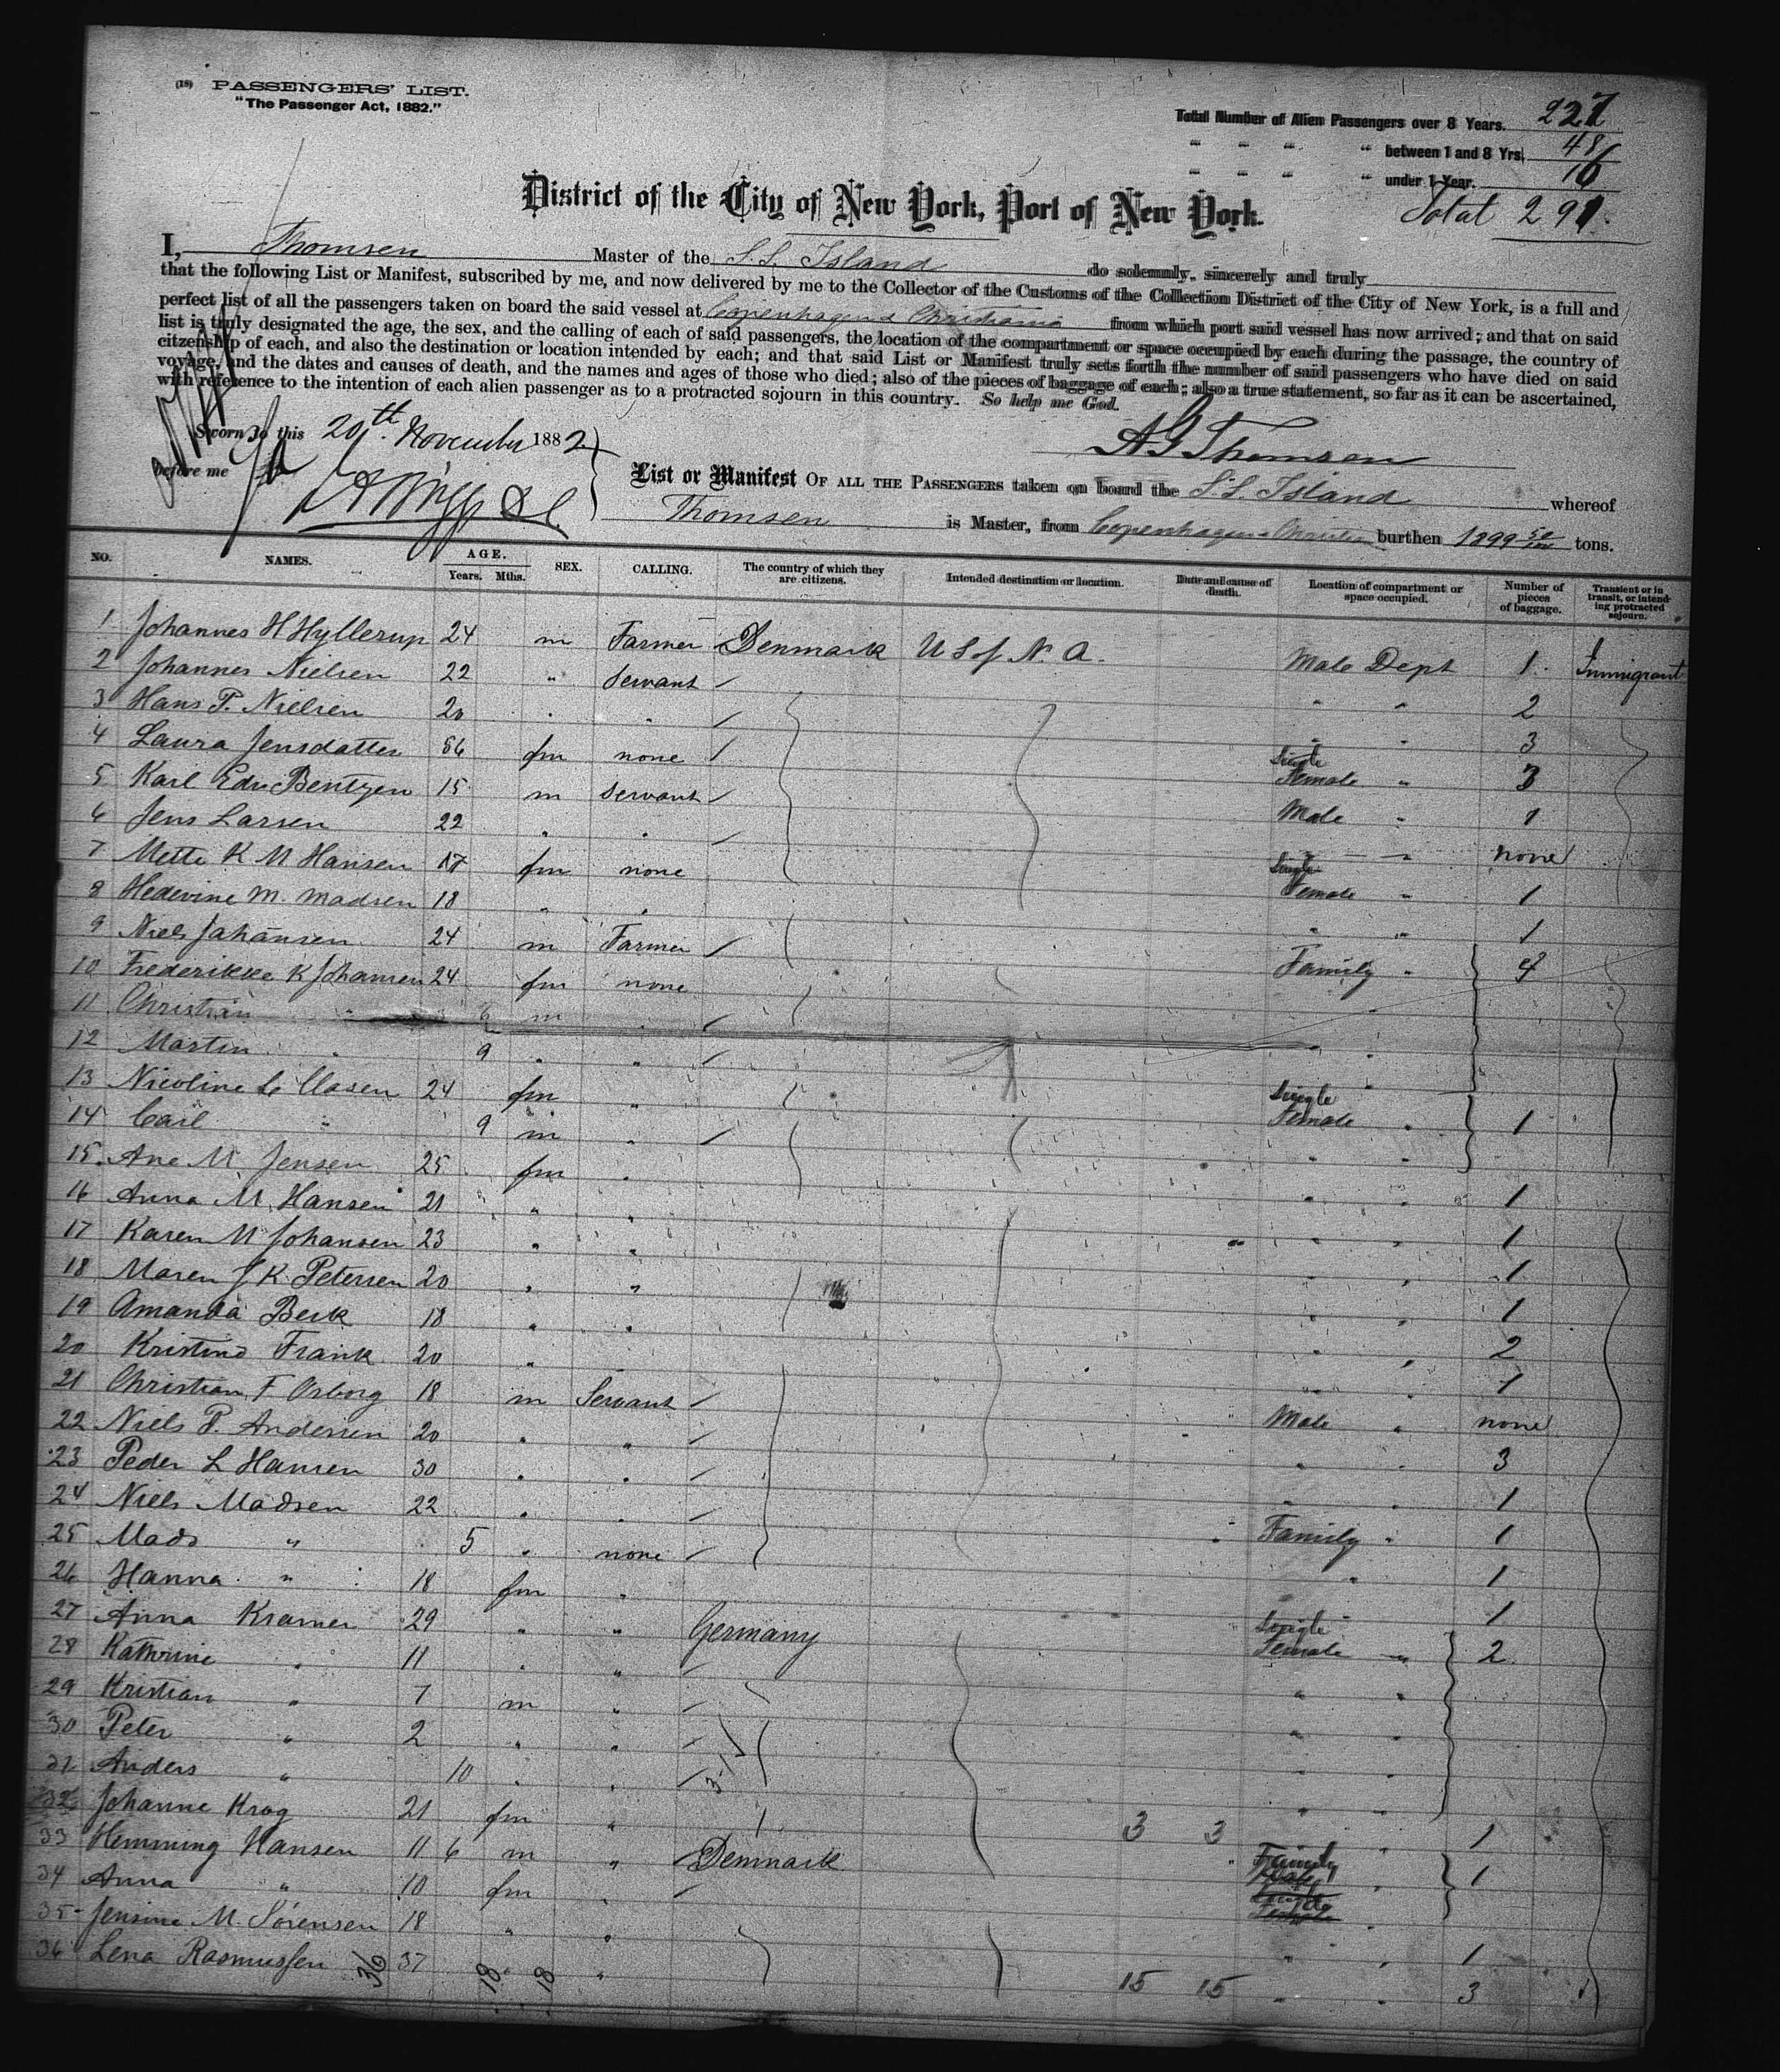 (18) PASSENGERS' LIST.
"The Passenger Act, 1882."
Total Number of Alien Passengers over 8 Years. 227
" " " " between 1 and 8 Yrs. 48
" " " " under 1 Year. 16
Total 291.
District of the City of New York, Port of New York.
I, Thomsen Master of the S.S. Island do solemnly, sincerely and truly
that the following List or Manifest, subscribed by me, and now delivered by me to the Collector of the Customs of the Collection District of the City of New York, is a full and
perfect list of all the passengers taken on board the said vessel at Copenhagen & Christiania from which port said vessel has now arrived; and that on said
list is truly designated the age, the sex, and the calling of each of said passengers, the location of the compartment or space occupied by each during the passage, the country of
citzenship of each, and also the destination or location intended by each; and that said List or Manifest truly sets forth the number of said passengers who have died on said
voyage, and the dates and causes of death, and the names and ages of those who died; also of the pieces of baggage of each; also a true statement, so far as it can be ascertained,
with reference to the intention of each alien passenger as to a protracted sojourn in this country. So help me God.
Sworn to this 20th November 1882
A G Thomsen
before me
List or Manifest OF ALL THE PASSENGERS taken on board the S.S. Island whereof
Thomsen is Master, from Copenhagen & Christian burthen 1299 50/100 tons.
NO. NAMES. AGE. Years. Mths. SEX. CALLING. The country of which they are citizens. Intended destination or location. Date and cause of death. Location of compartment or space occupied. Number of pieces of baggage. Transient or in transit, or intending protracted sojourn.
1 Johannes H Hyllerup 24 m Farmer Denmark U S of N. A. Male Dept 1. Immigrant
2 Johannes Nielsen 22 " Servant " " 2
3 Hans P. Nielsen 20 " " " " 3
4 Laura Jensdatter 56 fm none Single Female " 3
5 Karl Edv Bentzen 15 m Servant Male " 1
6 Jens Larsen 22 " " " " none
7 Mette K M Hansen 17 fm none Single Female " 1
8 Hedevine M. Madsen 18 " " " " 1
9 Niels Johansen 24 m Farmer Family " 4
10 Frederikke K Johansen 24 fm none "
11 Christian " 6 m " " "
12 Martin " 9 " "
13 Nicoline C Clasen 24 fm " Single Female " 1
14 Carl " 9 m " " "
15 Ane M. Jensen 25 fm " " " 1
16 Anna M. Hansen 21 " " " " 1
17 Karen M Johansen 23 " " " " 1
18 Maren J K. Petersen 20 " " " " 1
19 Amanda Beck 18 " " " " 2
20 Kristine Frank 20 " " " 1
21 Christian F Osborg 18 m Servant Male " none
22 Niels P. Andersen 20 " " " " 3
23 Peder L Hansen 30 " " " " 1
24 Niels Madsen 22 " " Family " 1
25 Mads " 5 " none " 1
26 Hanna " 18 fm " 1
27 Anna Kramer 29 " " Germany Single Female " 2
28 Kathrine " 11 " " " "
29 Kristian " 7 m " "
30 Peter " 2 " " "
31 Anders " 10 " " " "
32 Johanne Krog 21 fm " 3 3 " 1
33 Hemming Hansen 11 6 m " Denmark Family " 1
34 Anna " 10 fm " "
35 Jensine M. Sörensen 18 " " " " 1
36 Lena Rasmussen 37 " " 15 15 " " 3
36 18 18